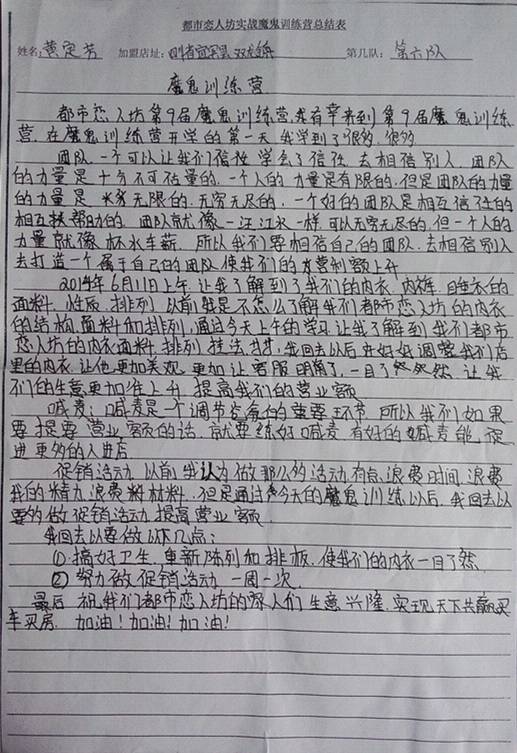 都市恋人坊实战魔鬼训练营总结表
姓名:黄定芳 加盟店址: 四川省宜宾县双龙镇 第几队: 第六队
魔鬼训练营
都市恋人坊第9届魔鬼训练营,我有幸来到第9届魔鬼训练
营.在魔鬼训练营开学的第一天我学到了很多,很多.
团队.一个可以让我们信任 学会了信任.去相信别人.团队
的力量是十分不可估量的.一个人的力量是有限的.但是团队的力量
的力量是 无限的.无穷无尽的.一个好的团队是相互信任的
相互扶帮助的.团队就像一汪江水一样.可以无穷无尽的.但一个人的
力量就像杯水车薪.所以我们要相信自己的团队.去相信别人
去打造一个属于自己的团队使我们的营利额上升
2014年6月11日上午.让我了解到了我们的内衣.内裤.保暖衣的
面料.性质.排列.以前我是不怎么了解我们都市恋人坊的内衣
的结构.面料和排列,通过今天上午的学习.让我了解到我们都市
恋人坊的内衣面料.排列.挂法.我回去以后 好好调整我们店
里的内衣.让他更加美观.更加让客服明确了.一目了然.让我
们的生意更加往上升.提高我们的营业额
喊麦:喊麦是一个调节气氛的重要环节.所以我们如果
要提要营业额的话.就要练好喊麦.有好的喊麦能.促
进更多的人进店
促销活动.以前我认为做那么多活动.有点.浪费时间.浪费
我的精力.浪费材料.但是通过今天的魔鬼训练以后.我回去以
要多做促销活动.提高营业额.
我回去以要做以下几点:
①.搞好卫生.重新陈列和排板.使我们的内衣一目了然.
② 努力做促销活动.一周一次.
最后 祝我们都市恋人坊的家人们生意兴隆.实现天下共赢买
车买房. 加油!加油!加油!